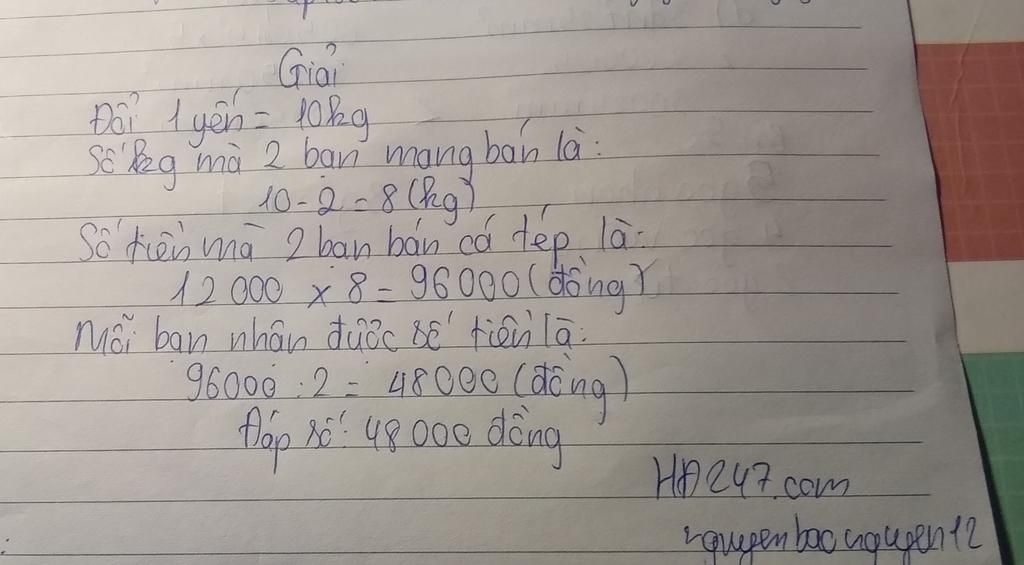 Giải
Đổi 1 yến = 10kg
Số kg mà 2 bạn mang bán là:
10 - 2 = 8 (kg)
Số tiền mà 2 bạn bán cá tép là:
12 000 x 8 = 96000 (đồng)
Mỗi bạn nhận được số tiền là:
96000 : 2 = 48000 (đồng)
Đáp số: 48 000 đồng
HĐ247.com
nguyenbaonguyen12